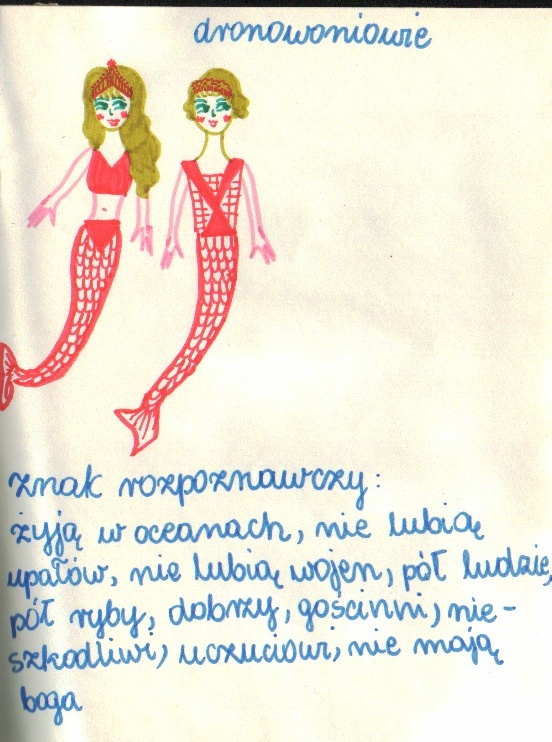 dronowoniowie
znak rozpoznawczy:
żyją w oceanach, nie lubią
upałów, nie lubią wojen, pół ludzie,
pół ryby, dobrzy, gościnni, nie-
szkodliwi, uczuciowi, nie mają
boga